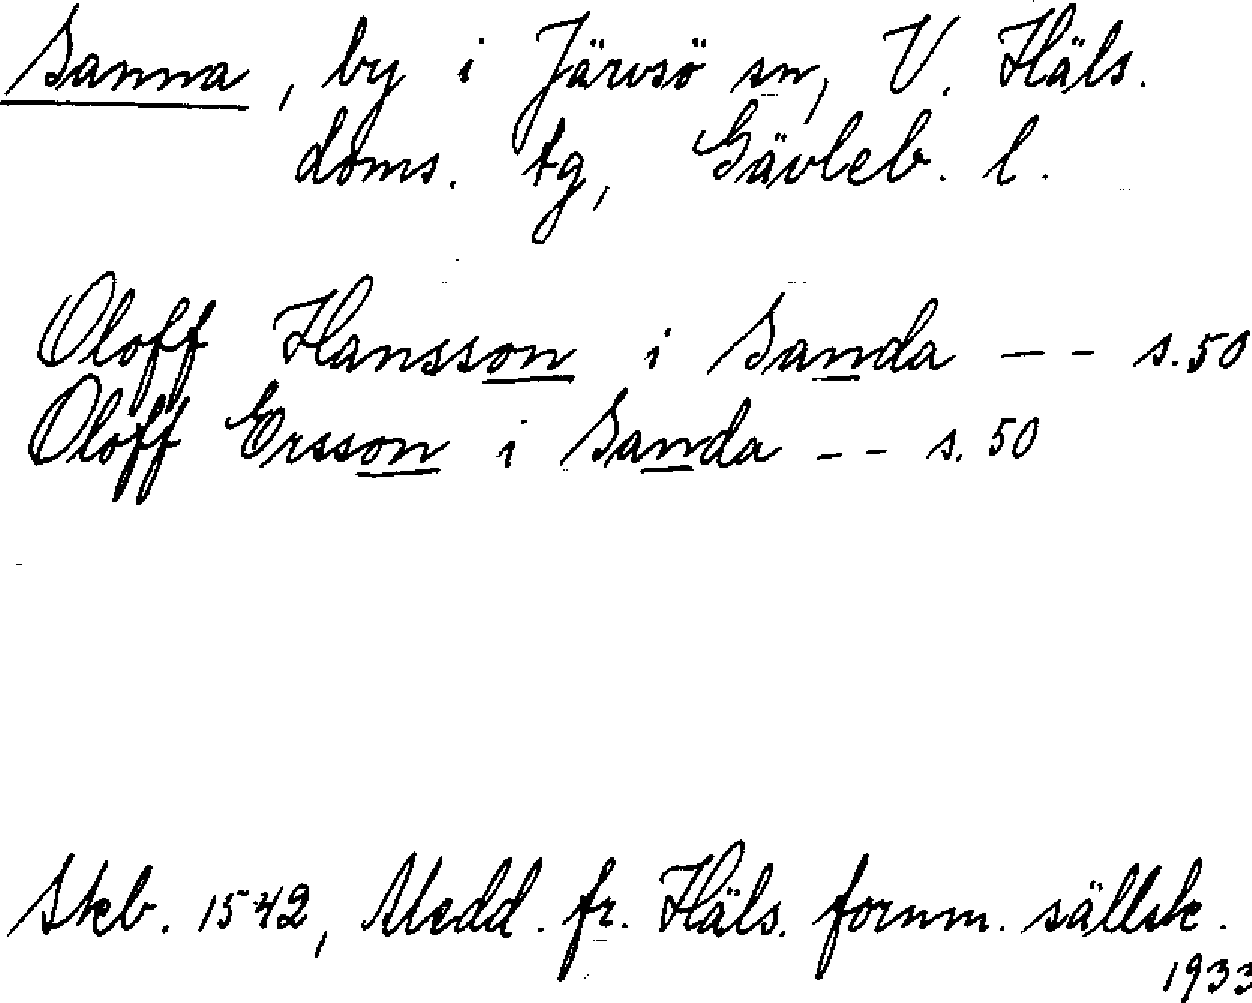 Sanna, by i Järvsö sn, V. Häls.
doms. tg, Gävleb. l.
Oloff Hansson i Sanda -- s. 50
Oloff Ersson i Sanda -- s. 50
Skb. 1542, Medd. fr. Häls. fornm. sällsk.
1933